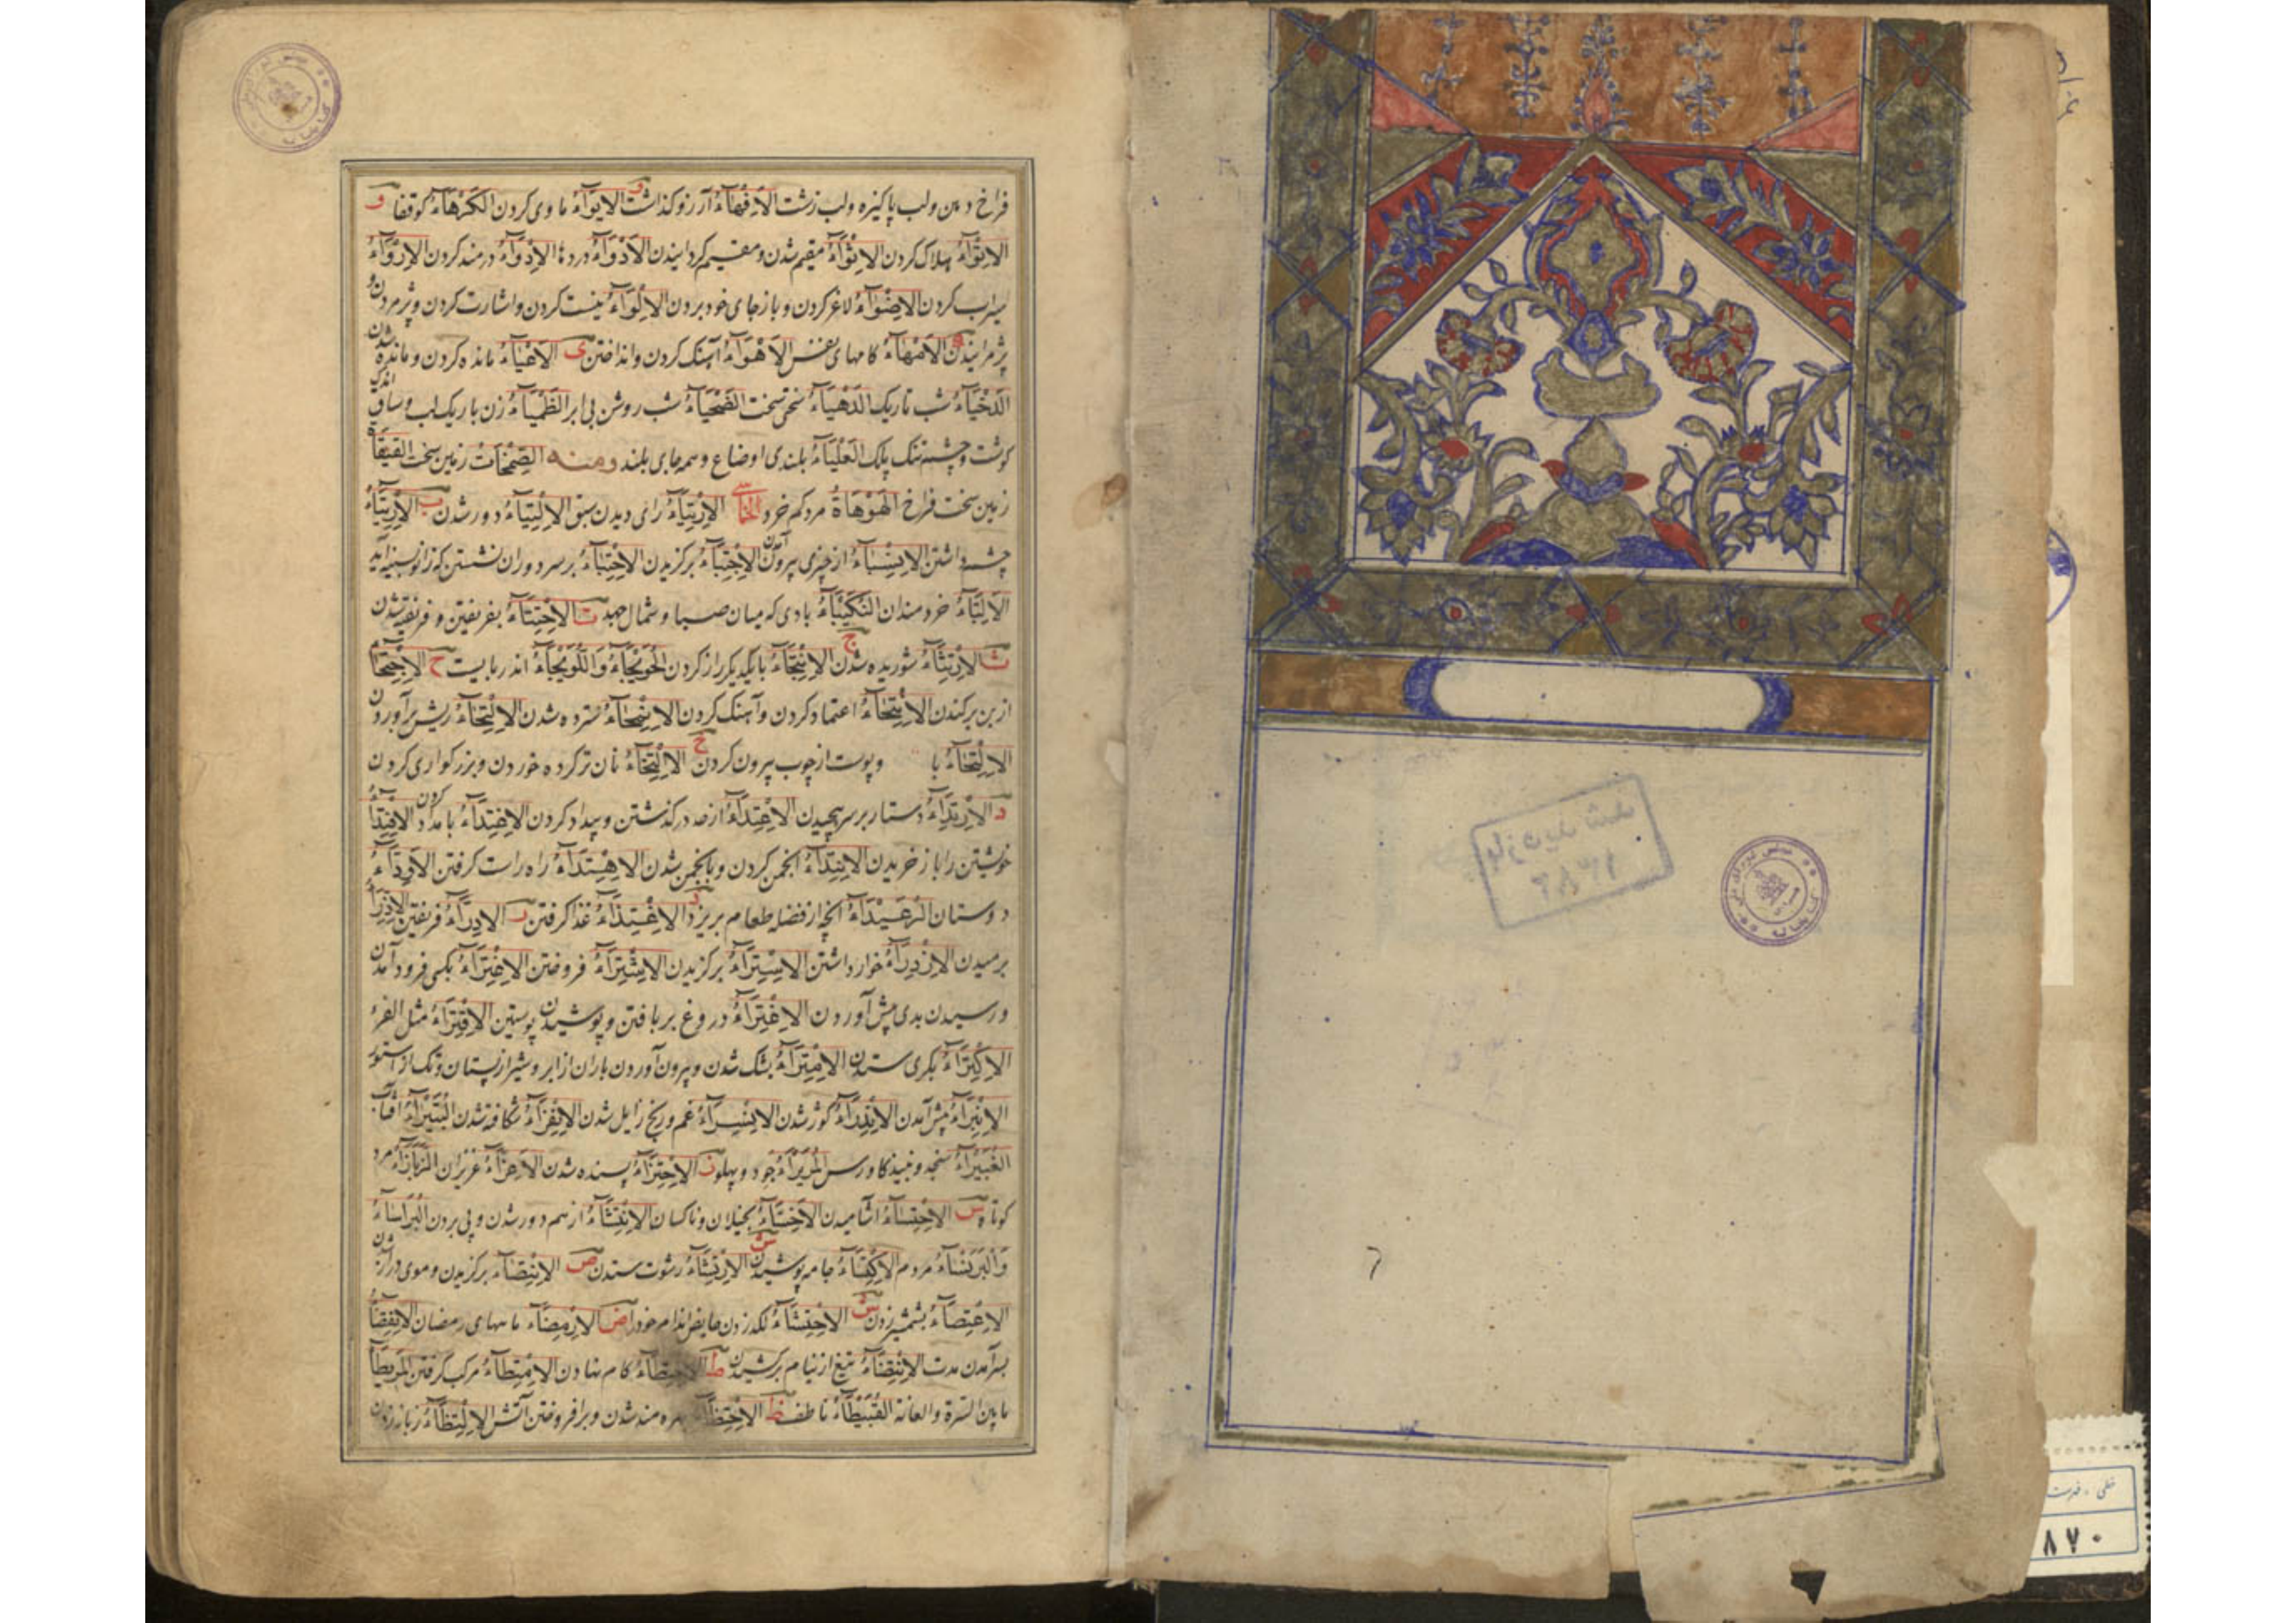 فراخ دهن ولب پاکیزه ولب زشت الاَفْهَآءُ آرزو کذاشت الایوَآءُ ماوی کردن الکَرْهَآءُ کوقفا و
الاِتْوَآءُ هلاک کردن الاِثْوَآءُ مقیم شدن ومقیم کردانیدن الاَدْوَآءُ دردها الاِدْوَآءُ دردمند کردن الاِرْوَآءُ
سیراب کردن الاِضْوَآءُ لاغر کردن وبازجای خود بردن الاِلْوَآءُ نیست کردن واشارت کردن وپژمردن و
پژمرانیدن الاَهْوَآءُ کامهای نفس الاِهْوَآءُ آهنک کردن وانداختن ی الاِعْیَآءُ مانده کردن ومانده شدن
الدَجْیَآءُ شب تاریک الدَهْیَآءُ سختی سخت الضَحْیَآءُ شب روشن بی ابر الظَمْیَآءُ زن باریک لب وساق اندک
کوشت وچشم تنک پلک العَلْیَآءُ بلندی اوضاع وهمه جای بلند ومنه الصِمْحَاتُ زمین سخت القیقَآةُ
زمین سخت فراخ الهَوْهَاةُ مرد کم خرد الخماسی الاِرْتِیَآءُ رای دیدن سبق الاِلْتِیَآءُ دور شدن ب الاِرْتِبَآءُ
چشم داشتن الاِنْسِبَآءُ از چیزی بیرون آمدن الاِجْتِبَآءُ برکزیدن الاِحْتِبَآءُ بر سر دوران نشستن که زانو بسینه آید
الاَلِبَّآءُ خردمندان النُکَیْبَآءُ بادی که میان صبا وشمال جهد ت الاِخْتِتَآءُ بفریفتن وفریفته شدن
ث الاِرْتِثَآءُ شوریده شدن ج الاِنْتِجَآءُ با یکدیکر راز کردن الحُوَیْجَآءُ وَاللُوَیْجَآءُ اندر بایست ح الاِجْتِحَآءُ
از بن برکندن الاِنْتِحَآءُ اعتماد کردن وآهنک کردن الاِنْمِحَآءُ سترده شدن الاِلْتِحَآءُ ریش برآوردن
الاِلْتِحَآءُ با وپوست از چوب بیرون کردن خ الاِلْتِخَآءُ نان تر کرده خوردن وبزرکواری کردن
د الاِرْتِدَآءُ دستار بر سر پیچیدن الاِعْتِدَآءُ از حد درکذشتن وبیداد کردن الاِغْتِدَآءُ بامداد کردن الاِفْتِدَآءُ
خویشتن را باز خریدن الاِنْتِدَآءُ انجمن کردن وبانجمن شدن الاِهْتِدَآءُ راه راست کرفتن الاَوِدَّآءُ
دوستان الرُعَیْدَآءُ آنچه از فضله طعام بریزد ذ الاِغْتِذَآءُ غذا کرفتن ر الاِدِرَآءُ فریفتن الاِذْرَآءُ
بررسیدن الاِزْدِرَآءُ خوار داشتن الاِسْتِرَآءُ برکزیدن الاِشْتِرَآءُ فروختن الاِعْتِرَآءُ بکسی فرود آمدن
ورسیدن بدی پیش آوردن الاِفْتِرَآءُ دروغ بر بافتن وپوشیدن پوستین الاِفْتِرَآءُ مثل الفرء
الاِکْتِرَآءُ بکری ستدن الاِمْتِرَآءُ بشک شدن وبیرون آوردن باران از ابر وشیر از پستان وتک از استور
الاِنْبِرَآءُ پیش آمدن الاِنْدِرَآءُ کوژ شدن الاِنْسِرَآءُ غم ورنج زایل شدن الاِنْفِرَآءُ شکافته شدن البُتَیْرَآءُ آفتاب
الغُبَیْرَآءُ سنجد ونبیذ کاورس المُرَیْرَآءُ جود وپهلو ز الاِجْتِزَآءُ بسنده شدن الاَعِزَّآءُ عزیزان الزَیازَآءُ مرد
کوتاه س الاِحْتِسَآءُ آشامیدن الاَخِسَّآءُ بخیلان وناکسان الاِنْفِسَآءُ از هم دور شدن وپی بردن البَرَاسَآءُ
وَالْبَرَنْسَآءُ مردم الاِکْتِسَآءُ جامه پوشیدن ش الاِرْتِشَآءُ رشوت ستدن ص الاِنْتِصَآءُ برکزیدن وموی دراز شدن
الاِعْتِصَآءُ بشمشیر زدن ش الاِحْتِشَآءُ لکد زدن حایض اندام خود را ض الاَرْمِضَآءُ ماههای رمضان الاِنْقِضَآءُ
بسرآمدن مدت الاِنْتِضَآءُ تیغ از نیام برکشیدن ط الاِخْتِطَآءُ کام نهادن الاِمْتِطَآءُ مرکب کرفتن المُرَیْطَآءُ
ما بین السرة والعانة القُبَیْطَآءُ ناطف ظ الاِحْتِظَآءُ بهره مند شدن وبرافروختن آتش الاِلْتِظَآءُ زبانه زدن
۸۷۰